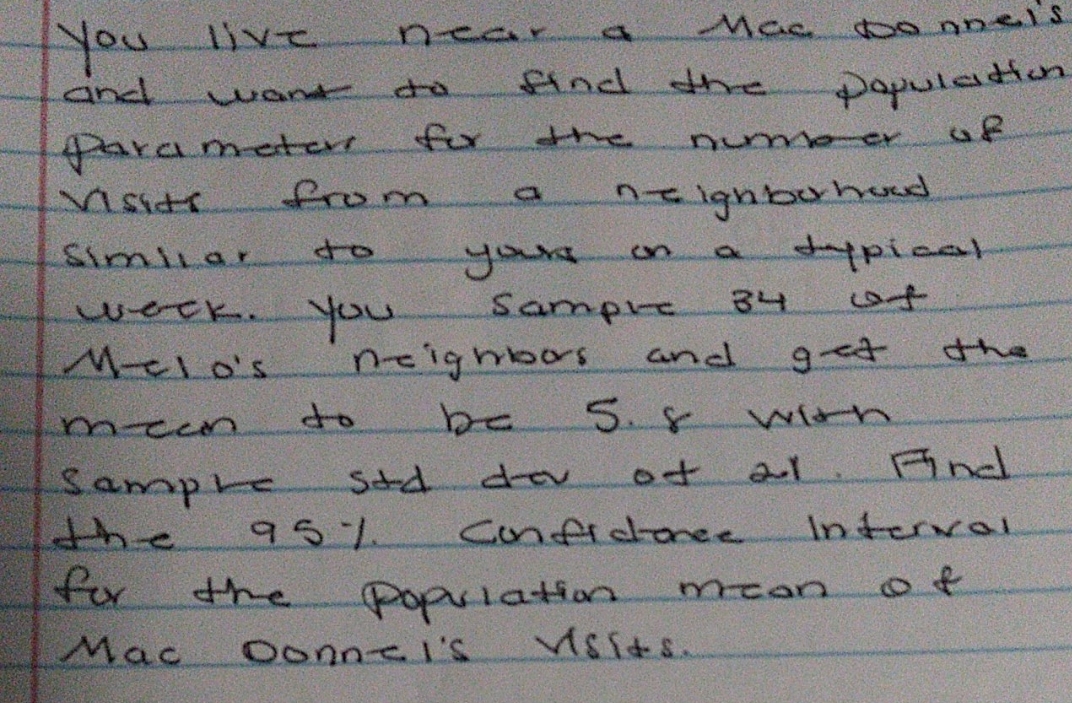 You live near a Mac Donnel's
and want to find the population
parameters for the number of
visits from a neighborhood
similar to yours on a typical
week. You sample 34 of
Melo's neighbors and get the
mean to be 5.8 with
sample std dev of 21. Find
the 95% Confidence Interval
for the population mean of
Mac Donnel's visits.